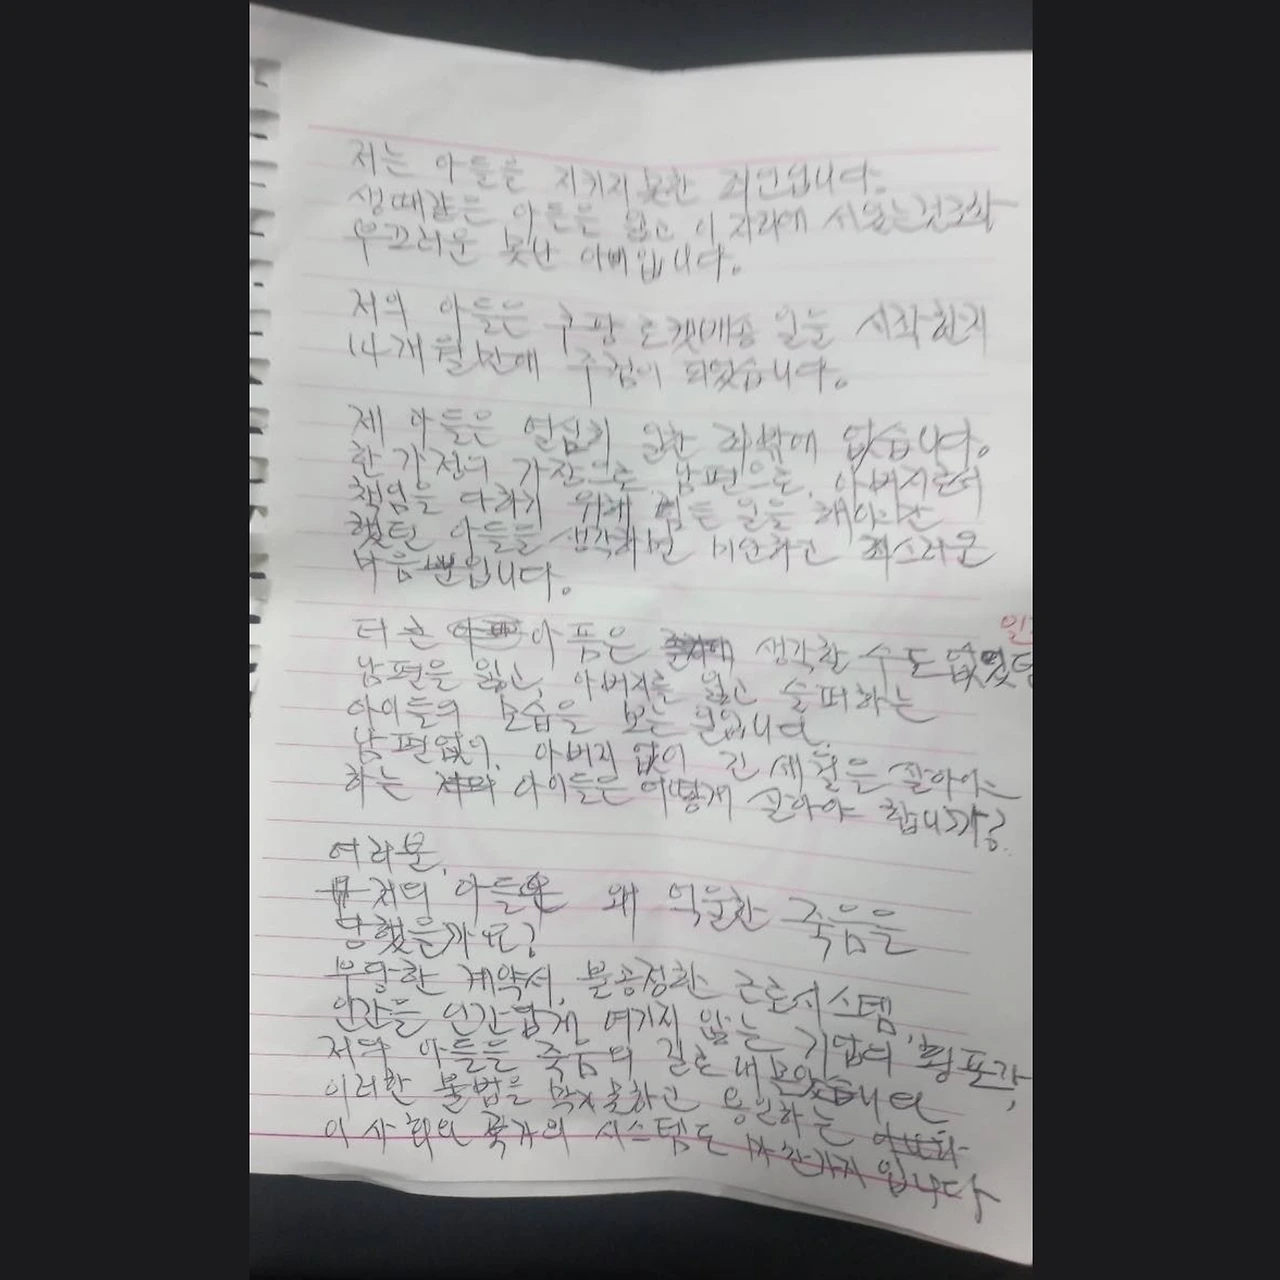 저는 아들을 지키지 못한 죄인입니다.
생때같은 아들을 잃고 이 자리에 서있는것조차
부끄러운 못난 아빠입니다.
저의 아들은 쿠팡 로켓배송 일을 시작한지
14개월만에 주검이 되었습니다.
제 아들은 열심히 일한 죄밖에 없습니다.
한 가정의 가장으로, 남편으로, 아버지로서
책임을 다하기 위해 힘든 일을 해야만
했던 아들을 생각하면 미안하고 죄스러운
마음뿐입니다.
더 큰 아픔은 생각할 수도 없었던
남편을 잃고, 아버지를 잃고 슬퍼하는
아이들의 모습을 보는 일입니다.
남편없이, 아버지 없이 긴 세월을 살아야
하는 아이들은 어떻게 살아야 합니까?
여러분,
저의 아들은 왜 억울한 죽음을
당했을까요?
부당한 계약서, 불공정한 근로시스템,
인간을 인간답게 여기지 않는 기업의 횡포가,
저의 아들을 죽음의 길로 내몰았습니다
이러한 불법을 막지 못하고 용인하는
이 사회와 국가의 시스템도 마찬가지 입니다